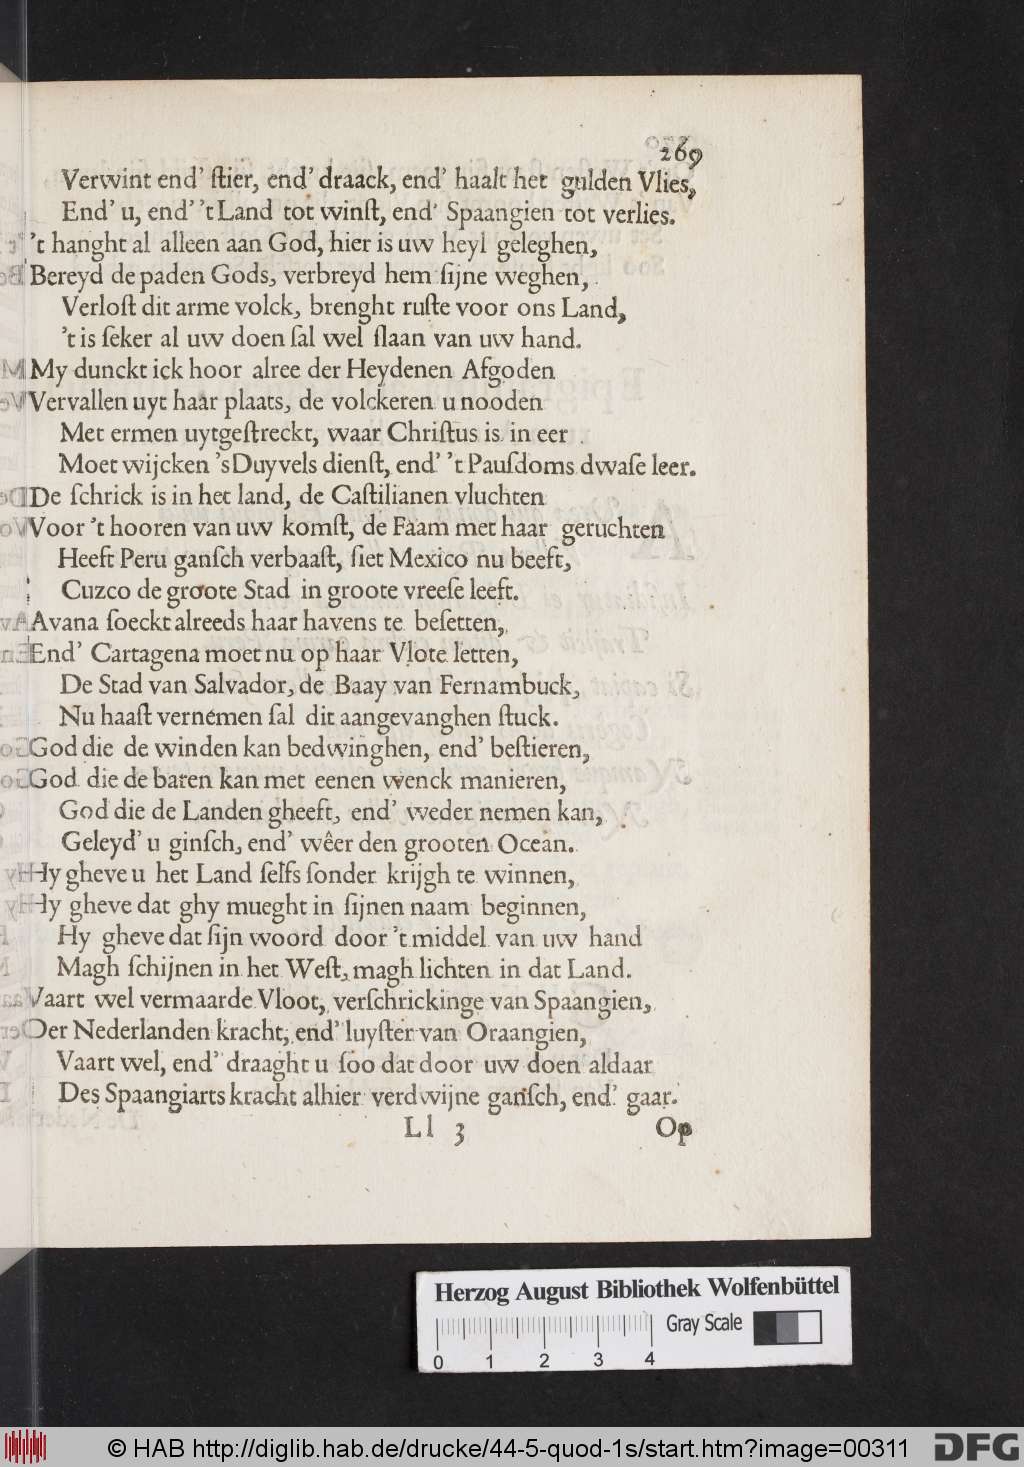 269
Verwint end’ ſtier, end’ draack, end’ haalt het gulden Vlies,
End’ u, end’ ’t Land tot winſt, end’ Spaangien tot verlies.
’t hanght al alleen aan God, hier is uw heyl geleghen,
Bereyd de paden Gods, verbreyd hem ſijne weghen,
Verloſt dit arme volck, brenght ruſte voor ons Land,
’t is ſeker al uw doen ſal wel ſlaan van uw hand.
My dunckt ick hoor alree der Heydenen Afgoden
Vervallen uyt haar plaats, de volckeren u nooden
Met ermen uytgeſtreckt, waar Chriſtus is in eer
Moet wijcken ’s Duyvels dienſt, end’ ’t Pauſdoms dwaſe leer.
De ſchrick is in het land, de Caſtilianen vluchten
Voor ’t hooren van uw komſt, de Faam met haar geruchten
Heeft Peru ganſch verbaaſt, ſiet Mexico nu beeft,
Cuzco de groote Stad in groote vreeſe leeft.
Avana ſoeckt alreeds haar havens te beſetten,
End’ Cartagena moet nu op haar Vlote letten,
De Stad van Salvador, de Baay van Fernambuck,
Nu haaſt vernemen ſal dit aangevanghen ſtuck.
God die de winden kan bedwinghen, end’ beſtieren,
God die de baren kan met eenen wenck manieren,
God die de Landen gheeft, end’ weder nemen kan,
Geleyd’ u ginſch, end’ wêer den grooten Ocean.
Hy gheve u het Land ſelfs ſonder krijgh te winnen,
Hy gheve dat ghy mueght in ſijnen naam beginnen,
Hy gheve dat ſijn woord door ’t middel van uw hand
Magh ſchijnen in het Weſt, magh lichten in dat Land.
Vaart wel vermaarde Vloot, verſchrickinge van Spaangien,
Der Nederlanden kracht, end’ luyſter van Oraangien,
Vaart wel, end’ draaght u ſoo dat door uw doen aldaar
Des Spaangiarts kracht alhier verdwijne ganſch, end’ gaar.
Ll 3 Op
Herzog August Bibliothek Wolfenbüttel
Gray Scale
0 1 2 3 4
© HAB http://diglib.hab.de/drucke/44-5-quod-1s/start.htm?image=00311
DFG